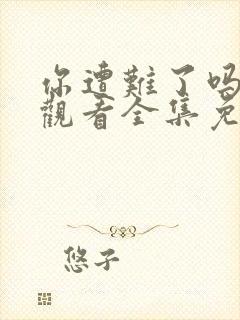 你遭難了嗎
觀看全集免
悠子